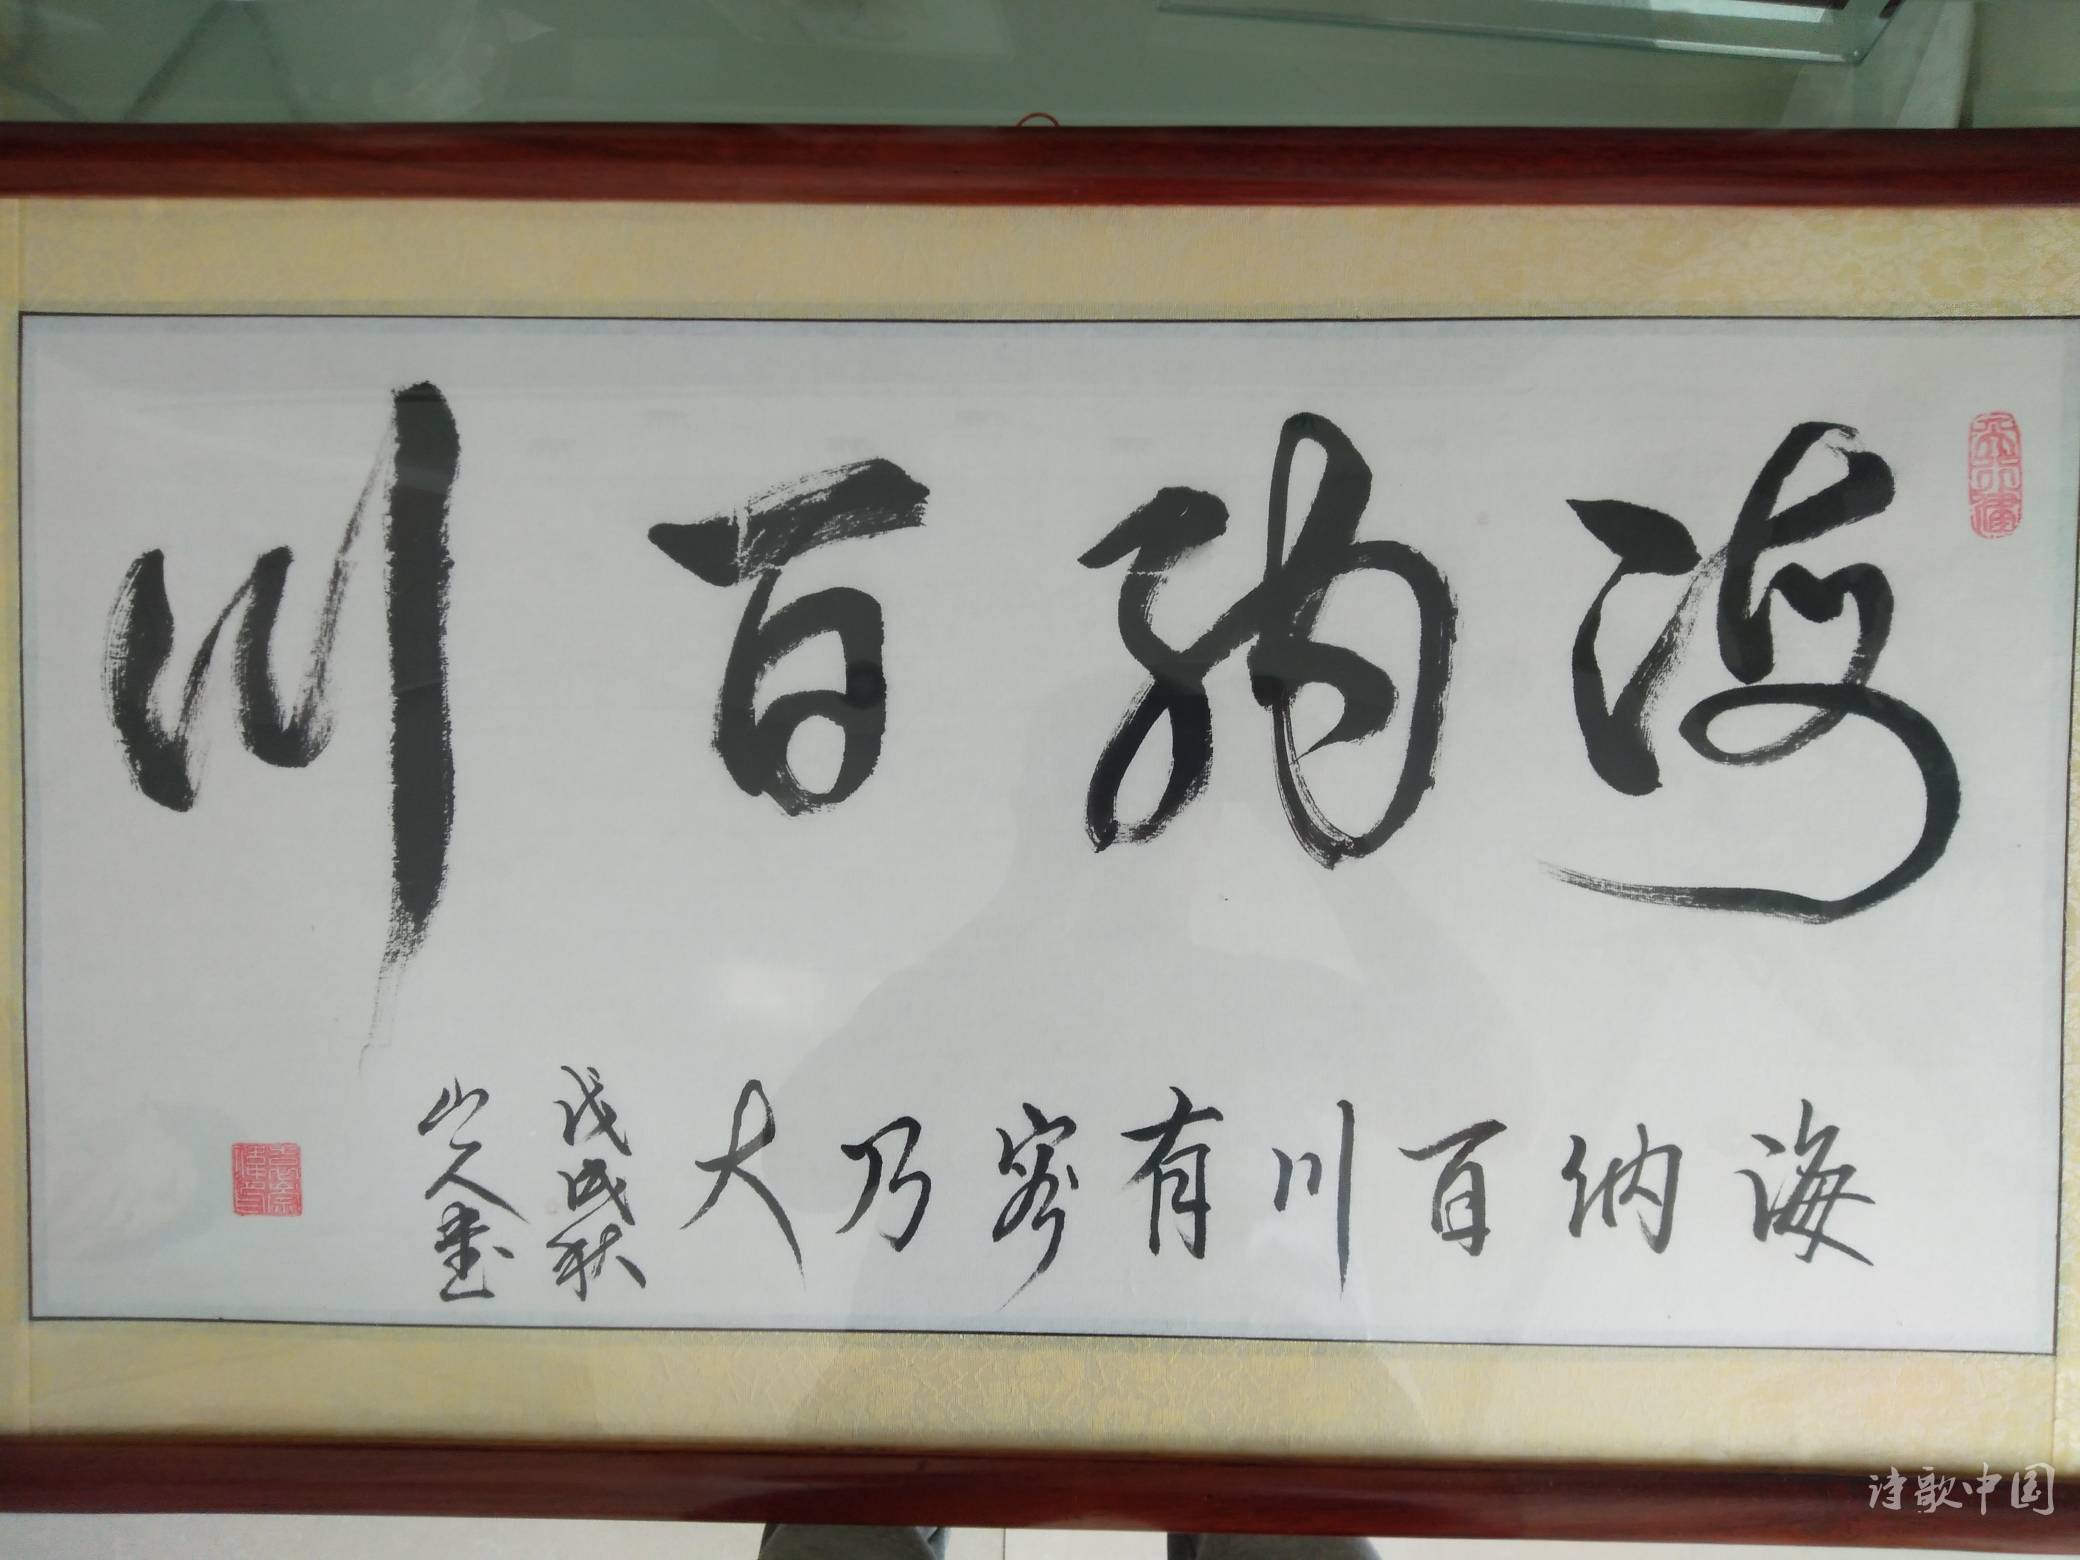 海纳百川
海纳百川有容乃大
戊戌秋
山人书
诗歌中国